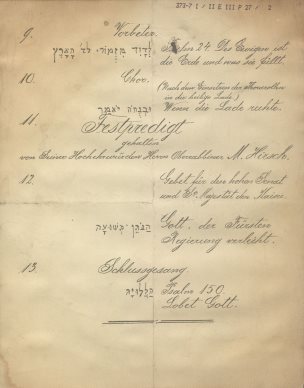 373-7 I / II E III P 27 / 2
9. Vorbeter.
לְדָוִד מִזְמוֹר לַה' הָאָרֶץ Psalm 24 Des Ewigen ist
die Erde und was sie füllt.
10. Chor.
(Nach dem Einsetzen der Thorarollen
in die heilige Lade)
וּבְנֻחֹה יֹאמַר Wenn die Lade ruhte.
11. Festpredigt
gehalten
von Seiner Hochehrwürden Herrn Oberrabbiner M. Hirsch.
12. Gebet für den hohen Senat
und Se. Majestät den Kaiser
הַנּוֹתֵן תְּשׁוּעָה Gott, der Fürsten
Regierung verleiht.
13. Schlussgesang
הַלְלוּיָהּ Psalm 150.
Lobet Gott.